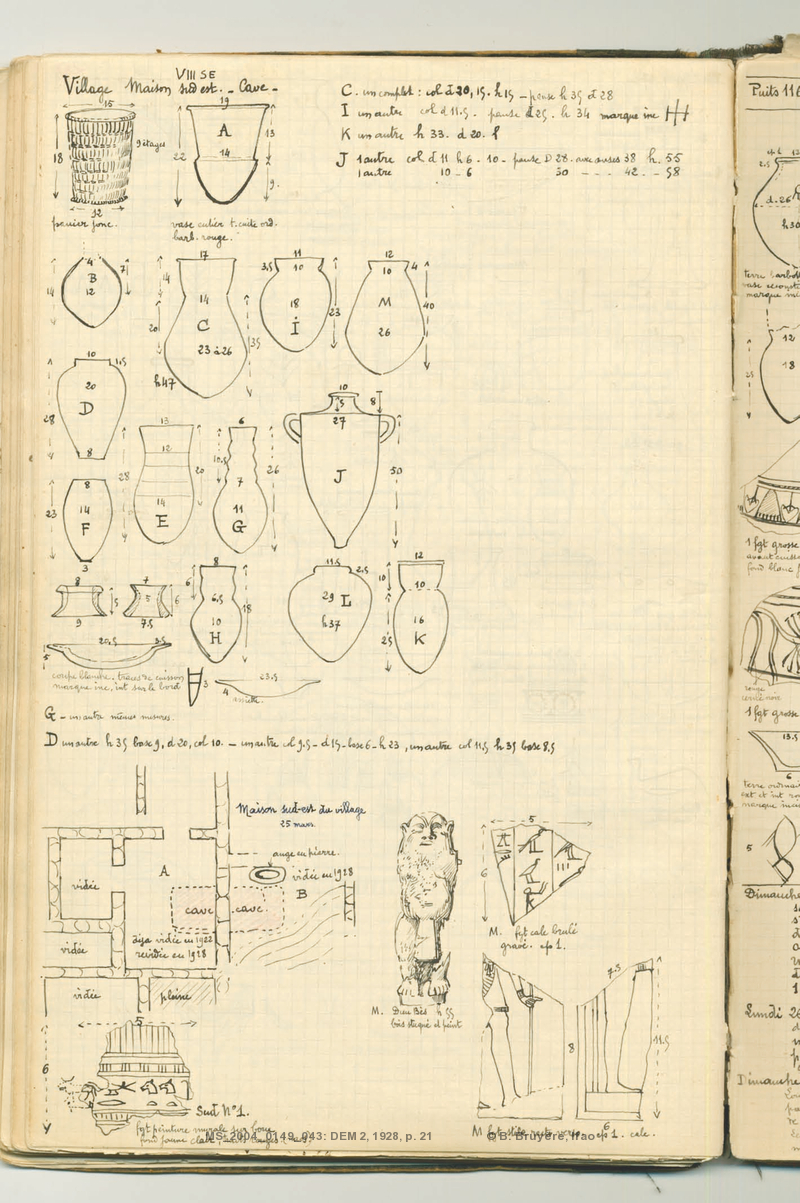 VIII SE
Village Maison sud est. - Cave -
C. un complet : col d 20, 15. h 15 - panse h 35 d 28
I un autre col d 11.5. panse d 25. h 34 marque inc
K un autre h 33. d 20.
J 1 autre col d 11 h 6 - 10 - panse D 28. avec anses 38 h. 55
1 autre 10 - 6 30 - - - 42 - - 58
15
18
9 étages
12
panier jonc.
19
A
14
22
13
9.
vase entier t. cuite ord.
barb. rouge.
4
B
12
14
7
17
14
C
23 à 26
14
20
35
h 47
11
3,5
10
18
I
23
12
10
4
M
26
40
10
1,5
20
D
28
8
13
12
14
E
28
20
6
10,5
7
11
G
26
10
5
8
27
J
50
8
14
F
23
3
8
5
9
7
5
6
7.5
8
6
6,5
10
H
18
11,5
2,5
29 L
h 37
12
10
10
16
K
25
20,5
3,5
5
coupe blanche. traces de cuisson
marque inc. int sur le bord
3
23,5
4
assiette.
G - un autre mêmes mesures.
D un autre h 35 base 9, d 20, col 10. - un autre col 9.5 - d 15 - base 6 - h 23, un autre col 11,5 h 35 base 8,5
Maison sud-est du village
25 mars
auge en pierre.
vidée en 1928
A
B
vidée
cave
cave.
déja vidée en 1922
revidée en 1928
vidée
vidée
pleine
M. Dieu Bès h 55
bois stuqué et peint
5
6
M. fgt calc brulé
gravé. ep 1.
7.5
8
11.5
6
M fgt stèle recto verso ep 1. calc.
5
6
Sud N°1.
fgt peinture murale sur boue
MS_2004_0149_043: DEM 2, 1928, p. 21
© B. Bruyère, Ifao
Puits 116
12
2,5
d. 26
h 30
marque
12
18
25
1 fgt grosse
fond blanc
rouge
1 fgt grosse
13.5
6
ext et int
5
Dimanche
Lundi 26
Dimanche